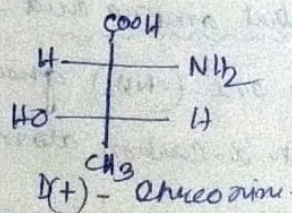 COOH
H NH2
HO H
CH3
D(+) - threonine